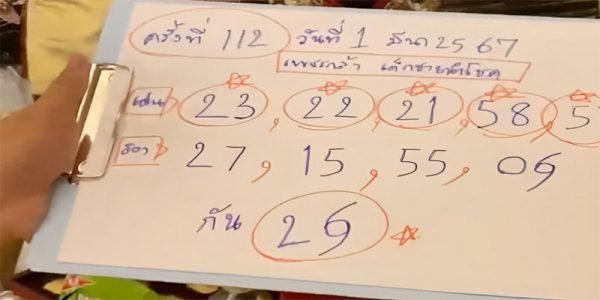 ครั้งที่ 112 วันที่ 1 มีนา 2567
เพชรกล้า เด็กชายนำโชค
เด่น 23, 22, 21, 58, 5
รอง 27, 15, 55, 09
กัน 29